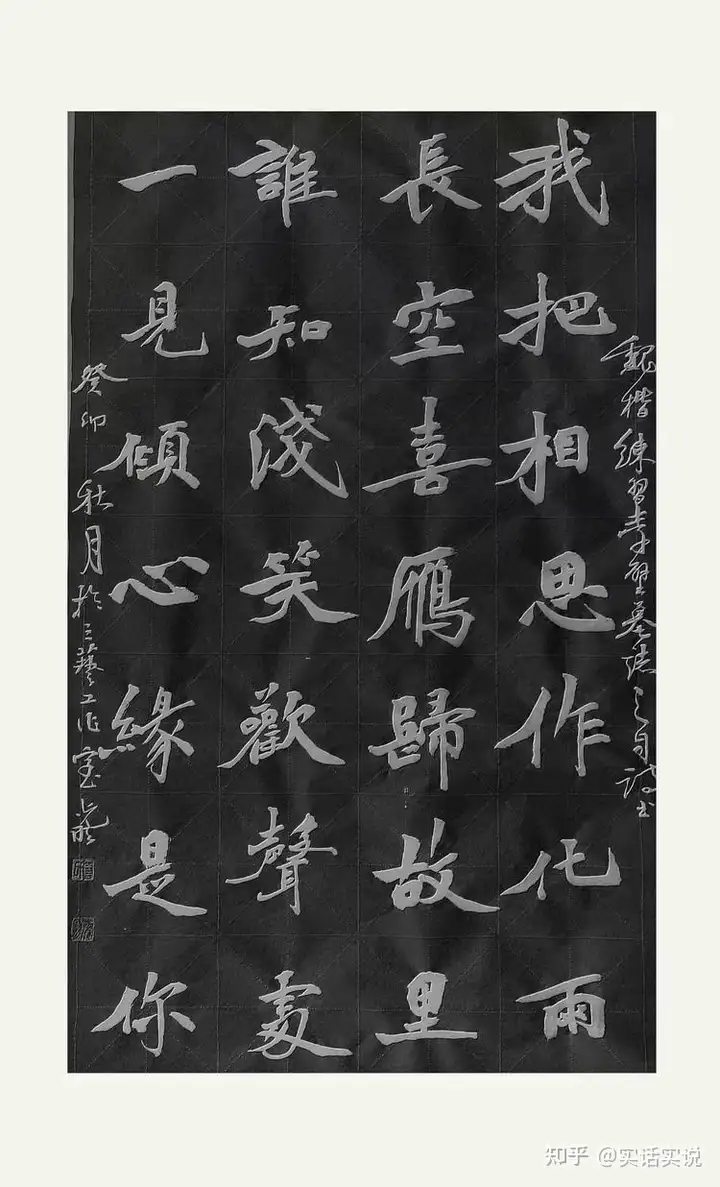 我把相思作化雨
長空喜雁歸故里
誰知淺笑歡聲處
一見傾心緣是你
魏楷練習李璧墓誌之自詩書
癸卯秋月於三藝工作室
知乎 @实话实说